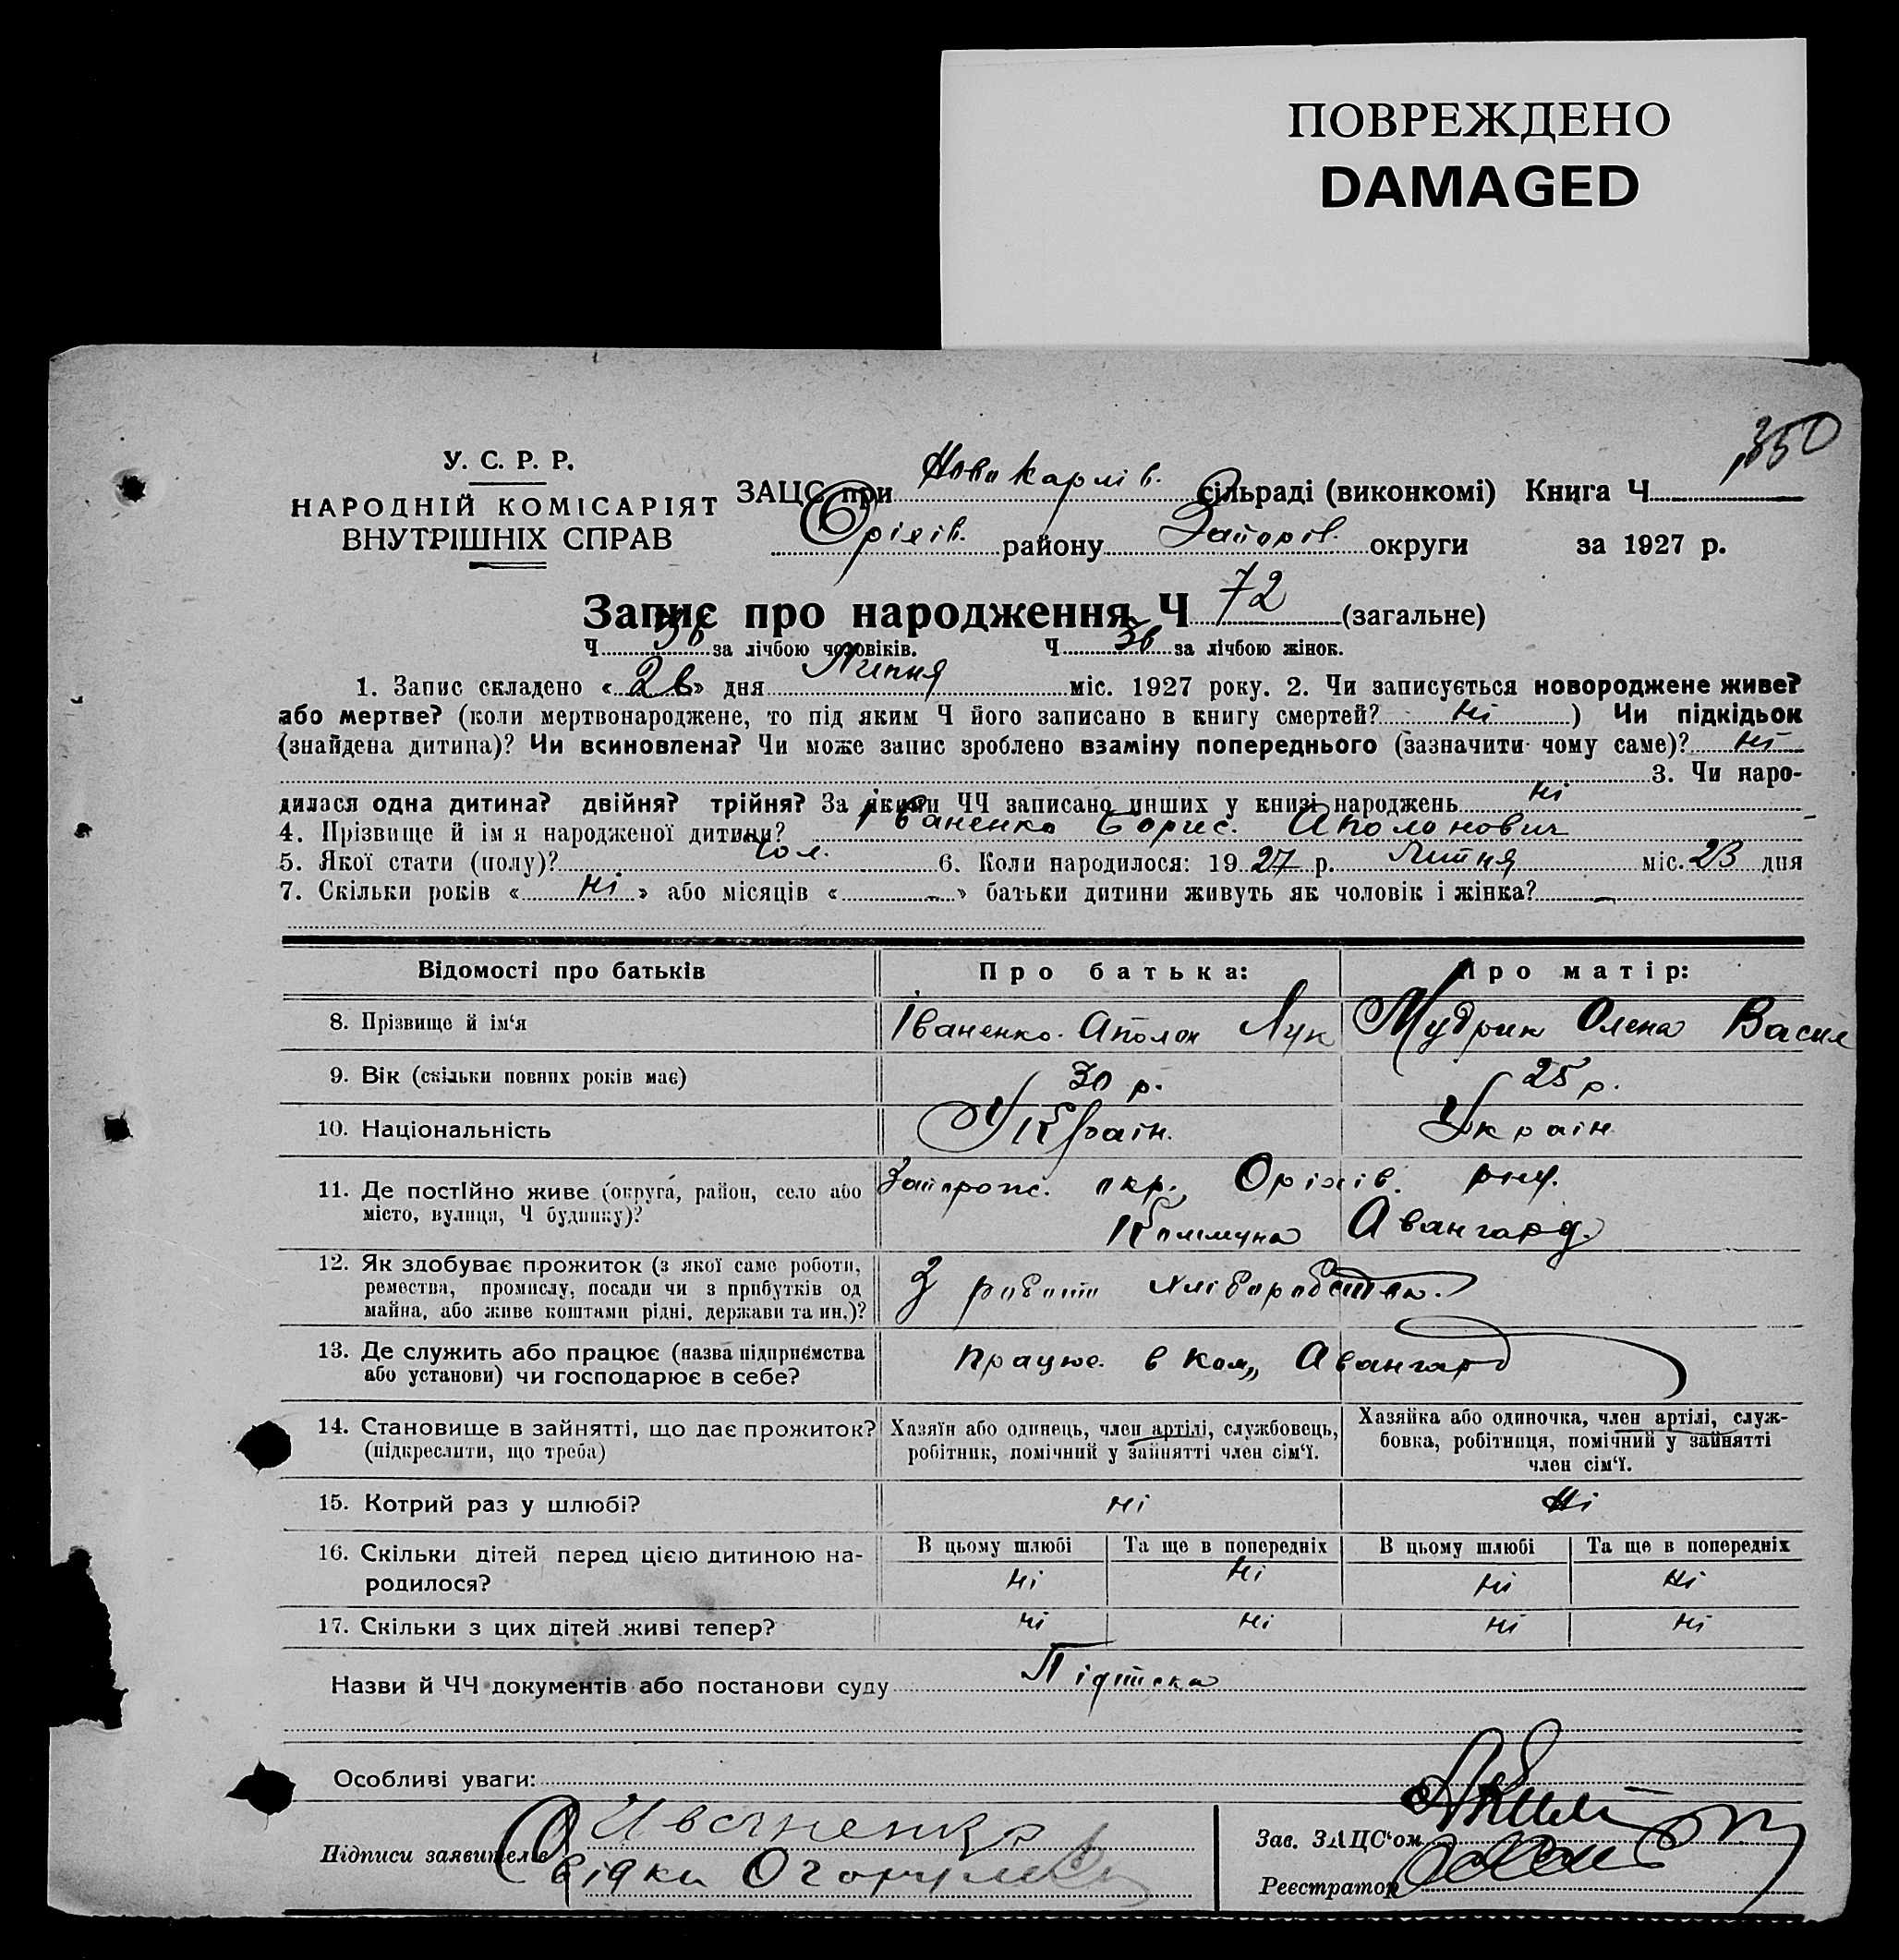 ПОВРЕЖДЕНО
DAMAGED
350
У. С. Р. Р.
НАРОДНІЙ КОМІСАРІЯТ
ВНУТРІШНІХ СПРАВ
ЗАЦС при Ново Карлів. сільраді (виконкомі) Книга Ч.
Оріхів. району Запоріз. округи за 1927 р.
Запис про народження Ч 72 (загальне)
Ч 36 за лічбою чоловіків. Ч 36 за лічбою жінок.
1. Запис складено « 26 » дня Липня міс. 1927 року. 2. Чи записується новороджене живе?
або мертве? (коли мертвонароджене, то під яким Ч його записано в книгу смертей? ні ) Чи підкідьок
(знайдена дитина)? Чи всиновлена? Чи може запис зроблено взаміну попереднього (зазначити чому саме)? ні
3. Чи наро-
дилася одна дитина? двійня? трійня? За якими ЧЧ записано инших у книзі народжень ні
4. Прізвище й ім я народженої дитини? Іваненко Борис. Аполонович
5. Якої стати (полу)? чол. 6. Коли народилося: 19 27 р. Липня міс. 23 дня
7. Скільки років « ні » або місяців « – » батьки дитини живуть як чоловік і жінка? –
Відомості про батьків Про батька: Про матір:
8. Прізвище й ім‘я Іваненко Аполон Лук Мудрик Олена Васил
9. Вік (скільки повних років має) 30 р. 25 р.
10. Національність Україн. Україн
11. Де постійно живе (округа, район, село або Запорож. окр., Оріхів. рну.
місто, вулиця, Ч будинку)? Коммуна Авангард.
12. Як здобуває прожиток (з якої саме роботи, З роботи хліборобства.
ремества, промислу, посади чи з прибутків од
майна, або живе коштами рідні, держави та ин.)?
13. Де служить або працює (назва підприємства працює в Ком„ Авангард
або установи) чи господарює в себе?
14. Становище в зайнятті, що дає прожиток? Хазяїн або одинець, член артілі, службовець, Хазяйка або одиночка, член артілі, служ-
(підкреслити, що треба) робітник, помічний у зайнятті член сім‘ї. бовка, робітниця, помічний у зайнятті
член сім‘ї.
15. Котрий раз у шлюбі? ні ні
16. Скільки дітей перед цією дитиною на- В цьому шлюбі Та ще в попередніх В цьому шлюбі Та ще в попередніх
родилося? ні ні ні ні
17. Скільки з цих дітей живі тепер? ні ні ні ні
Назви й ЧЧ документів або постанови суду Підписка
Особливі уваги:
Підписи заявителів Иваненко
Свідки
Зав. ЗАЦС‘ом
Реєстратор